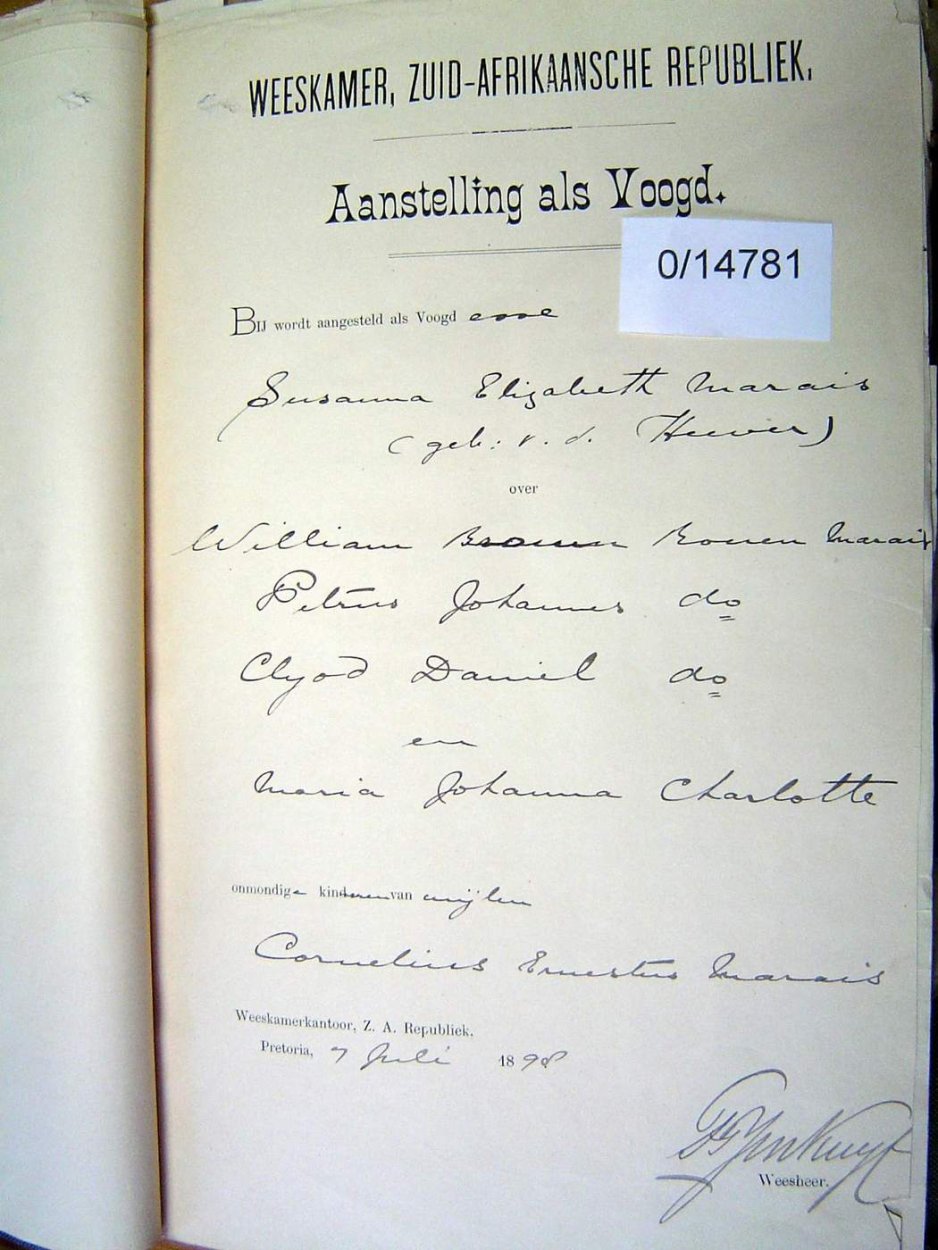 WEESKAMER, ZUID-AFRIKAANSCHE REPUBLIEK.
Aanstelling als Voogd.
0/14781
BIJ wordt aangesteld als Voogd
Susanna Elizabeth Marais
(geb: v. d. Heever)
over
William Bowen Marais
Petrus Johannes do
Clyod Daniel do
en
Maria Johanna Charlotte
onmondige kinderen van wijlen
Cornelius Ernestus Marais
Weeskamerkantoor, Z. A. Republiek.
Pretoria, 7 Juli 1898
Weesheer.